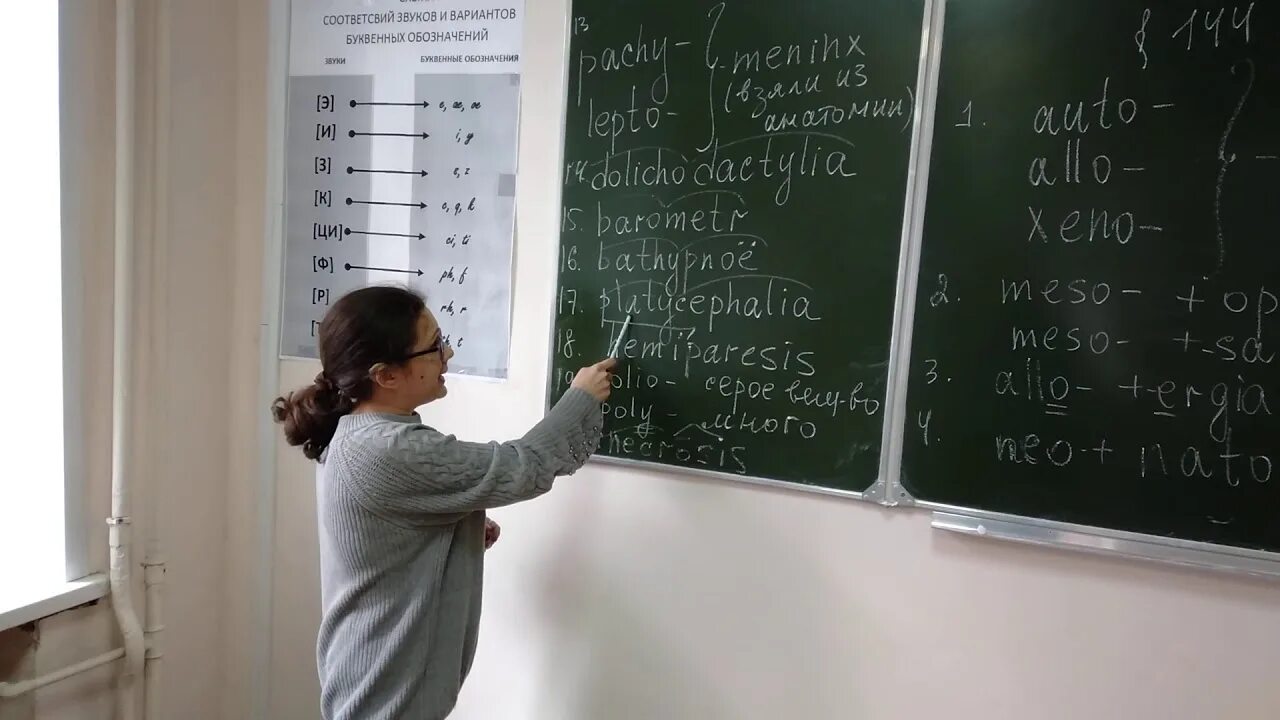 СООТВЕТСВИЙ ЗВУКОВ И ВАРИАНТОВ
БУКВЕННЫХ ОБОЗНАЧЕНИЙ
ЗВУКИ БУКВЕННЫЕ ОБОЗНАЧЕНИЯ
[Э] e, æ, œ
[И] i, y
[З] s, z
[К] c, q, k
[ЦИ] ci, ti
[Ф] ph, f
[Р] rh, r
t
13
pachy- meninx
lepto- (взяли из
анатомии)
14. dolichodactylia
15. barometr
16. bathypnoё
17. platycephalia
18. hemiparesis
polio- серое вещ-во
poly - много
necrosis
§ 144
1. auto-
allo-
xeno-
2. meso- + op
meso- + sa
3. allo- + ergia
4. neo- + nato